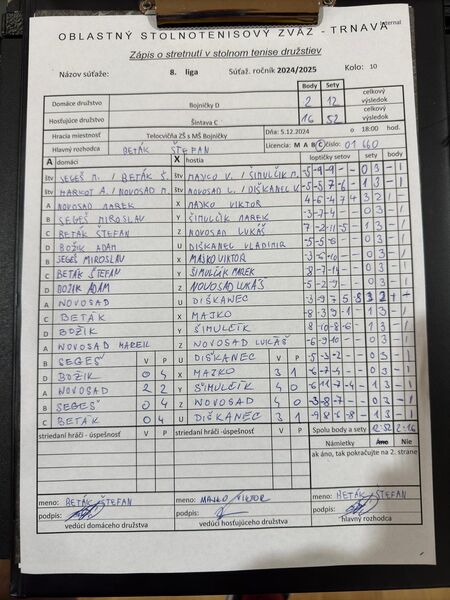 Internal
OBLASTNÝ STOLNOTENISOVÝ ZVÄZ - TRNAVA
Zápis o stretnutí v stolnom tenise družstiev
Názov súťaže: 8. liga Súťaž. ročník 2024/2025 Kolo: 10
Body Sety
Domáce družstvo Bojničky D 2 12 celkový výsledok
Hosťujúce družstvo Šintava C 16 52 celkový výsledok
Hracia miestnosť Telocvičňa ZŠ s MŠ Bojničky Dňa: 5.12.2024 o 18:00 hod.
Hlavný rozhodca BETÁK ŠTEFAN Licencia: M A B C číslo: 01 660
A domáci X hostia loptičky setov sety body
štv SEGEŠ M. / BETÁK Š. štv MAJKO V. / ŠIMULČÍK M. 03 - 1
štv HARKOT A. / NOVOSAD M. štv NOVOSAD L. / DIŠKANEC V. 13 - 1
A NOVOSAD MAREK X MAJKO VIKTOR 13 - 1
B SEGEŠ MIROSLAV Y ŠIMULČÍK MAREK -3-7-4 - - 03 - 1
C BETÁK ŠTEFAN Z NOVOSAD LUKÁŠ 13 - 1
D BOŽIK ADAM U DIŠKANEC VLADIMIR 03 - 1
B SEGEŠ MIROSLAV X MAJKO VIKTOR 03 - 1
C BETÁK ŠTEFAN Y ŠIMULČÍK MAREK 03 - 1
D BOŽIK ADAM Z NOVOSAD LUKÁŠ -5-2-9 - - 03 - 1
A NOVOSAD U DIŠKANEC -3 9 7 5 8 32
C BETÁK X MAJKO 13 - 1
D BOŽIK Y ŠIMULČÍK 13 - 1
A NOVOSAD MAREK Z NOVOSAD LUKÁŠ -6-9-10 - - 03 - 1
B SEGEŠ V P U DIŠKANEC V P -5-3-2 - - 03 - 1
D BOŽIK 0 4 X MAJKO 3 1 03 - 1
A NOVOSAD 2 2 Y ŠIMULČÍK 4 0 13 - 1
B SEGEŠ 0 4 Z NOVOSAD 4 0 -3-8-7 - - 03 - 1
C BETÁK 0 4 U DIŠKANEC 3 1 13 - 1
striedaní hráči - úspešnosť V P striedaní hráči -úspešnosť V P Spolu body a sety 12-52 2-16
Námietky Áno Nie
ak áno, tak pokračujte na 2. strane
meno: BETÁK ŠTEFAN meno: MAJKO VIKTOR meno: BETÁK ŠTEFAN
podpis: podpis: podpis:
vedúci domáceho družstva vedúci hosťujúceho družstva hlavný rozhodca